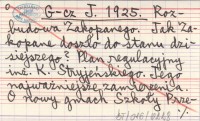 G-cz J. 1925. Roz-
budowa Zakopanego. Jak Za-
kopane doszło do stanu dzi-
siejszego? Plan regulacyjny
inż. K. Stryjeńskiego. Jego
najważniejsze zamierzenia.
O nowy gmach Szkoły Prze-